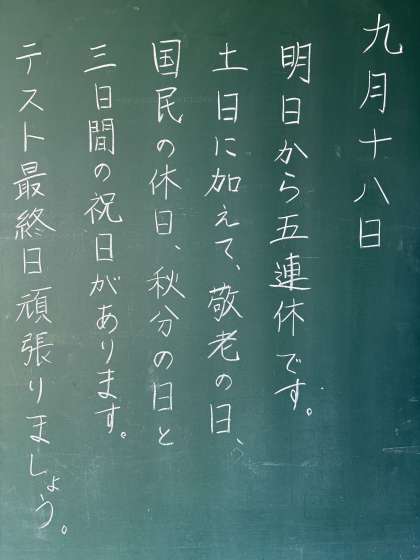 九月十八日
明日から五連休です。
土日に加えて、敬老の日、
国民の休日、秋分の日と
三日間の祝日があります。
テスト最終日頑張りましょう。